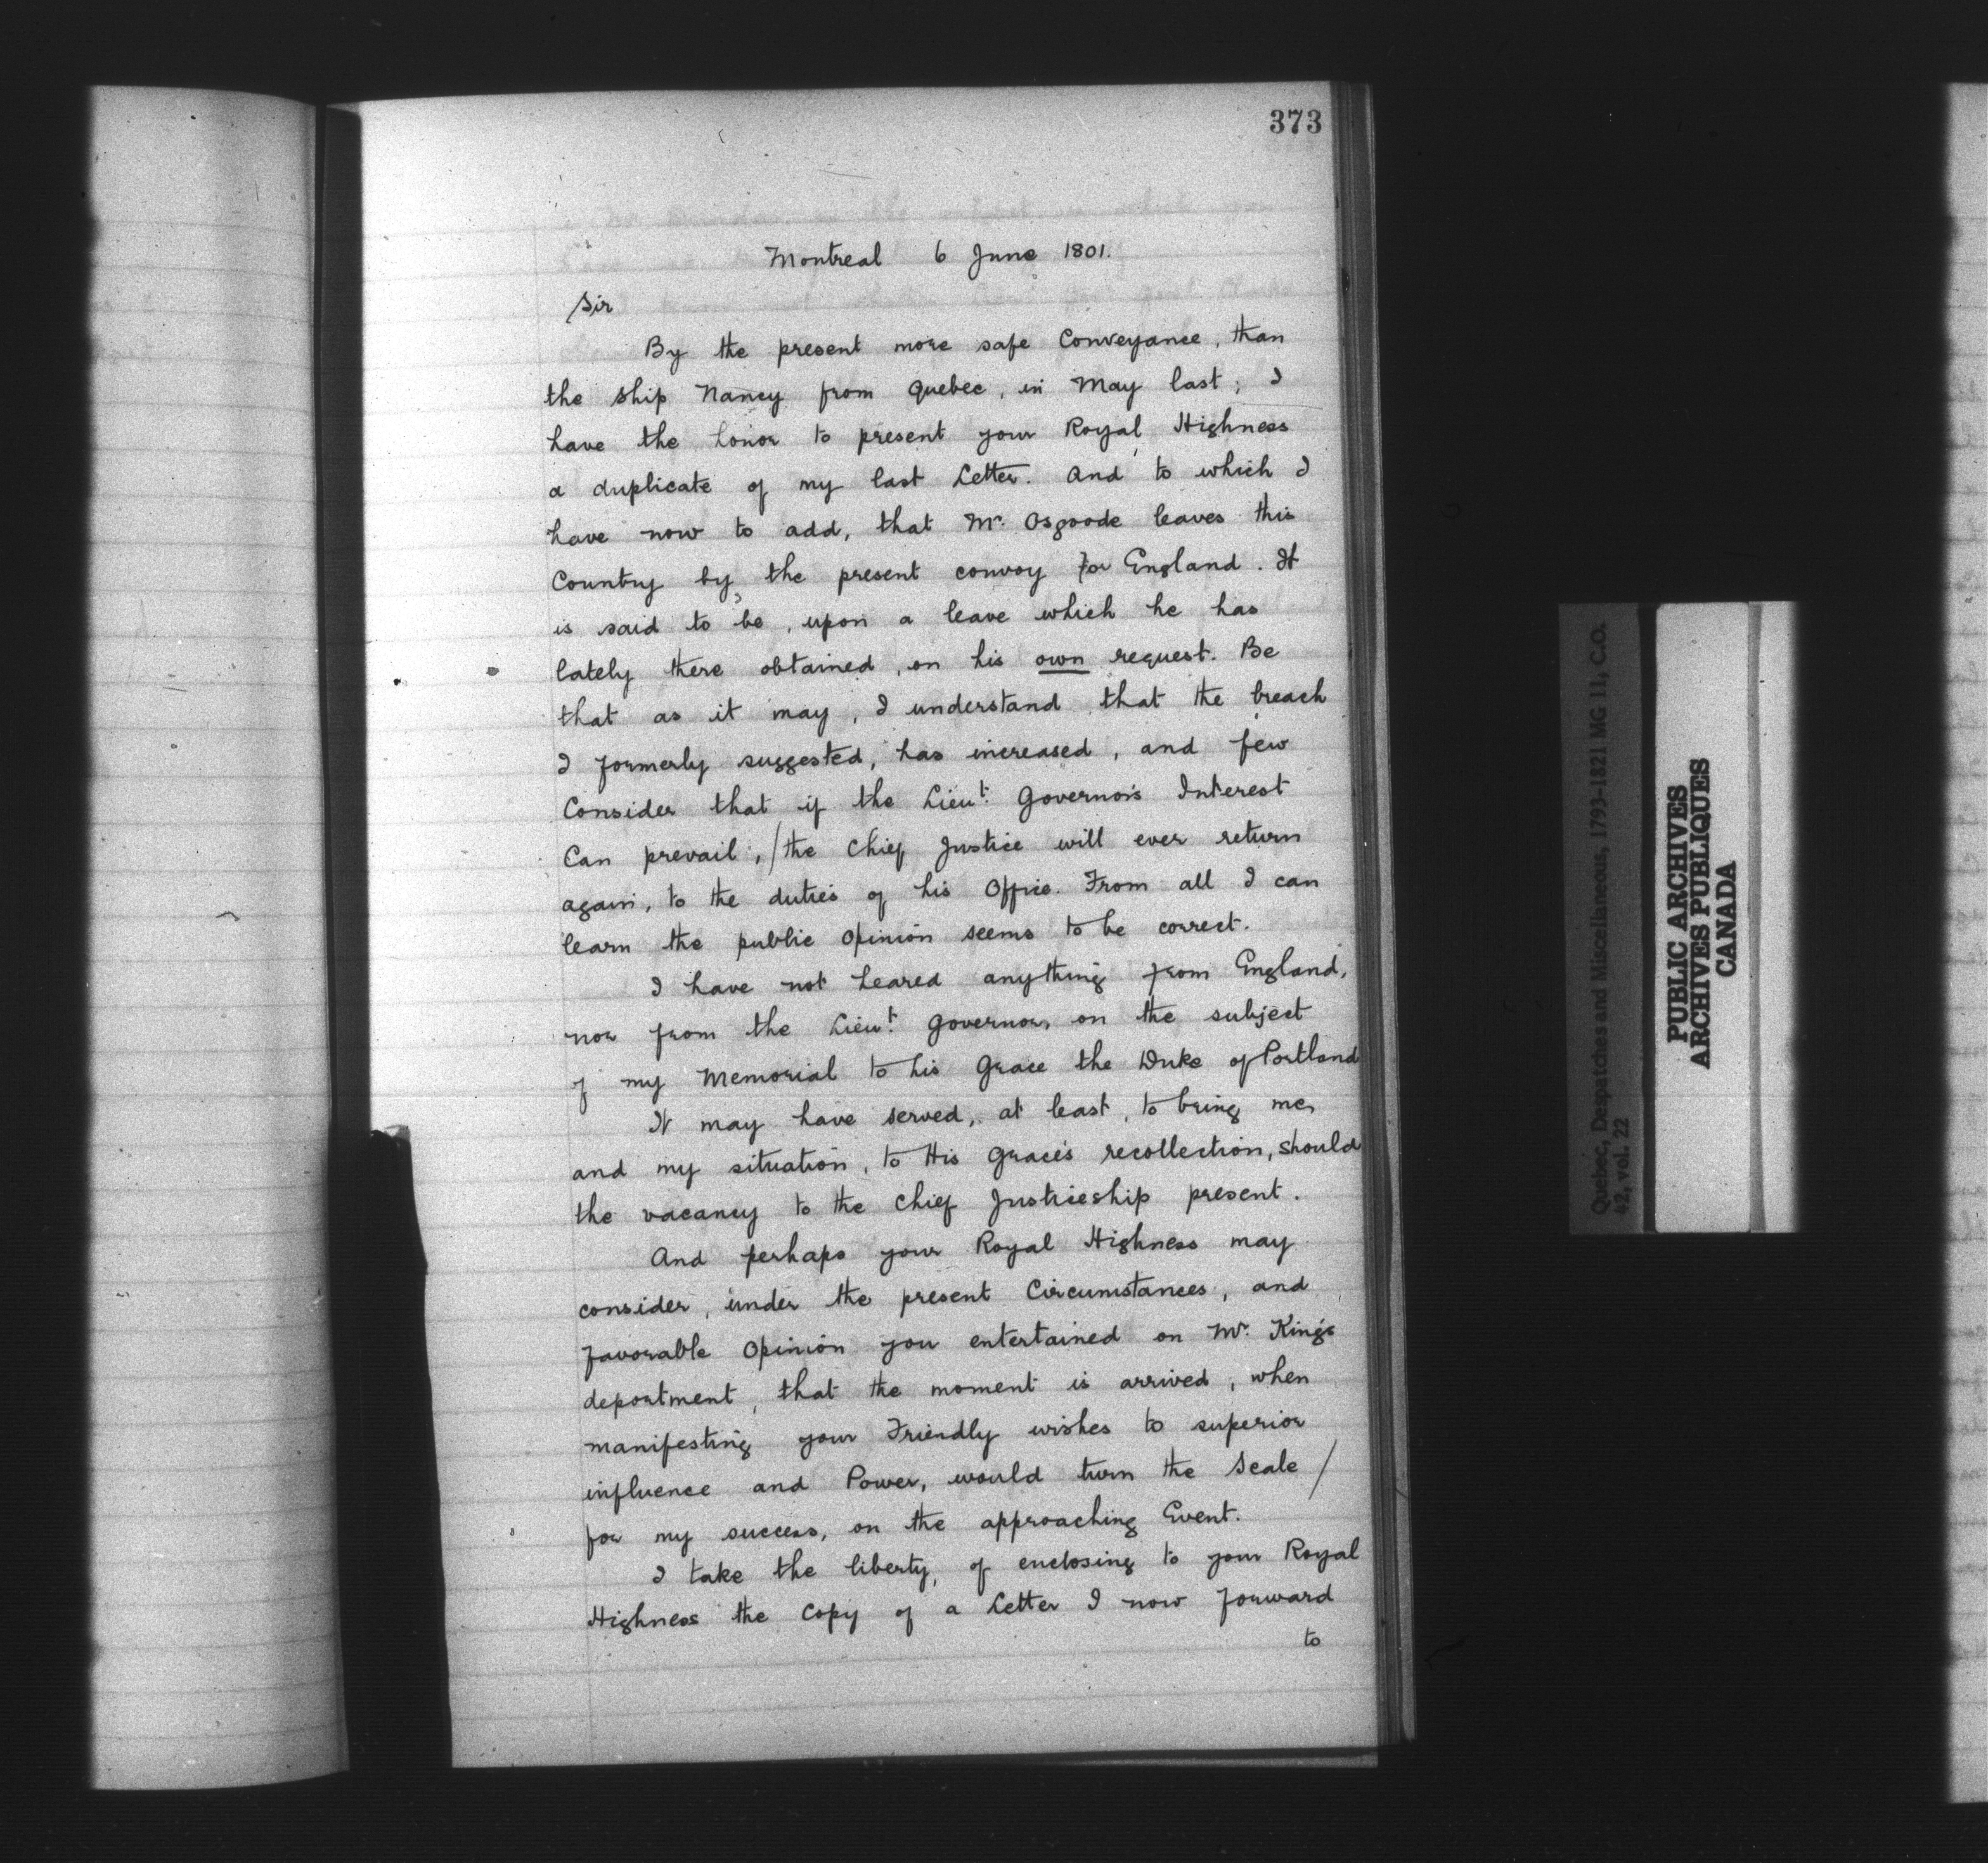 373
Montreal 6 June 1801.
Sir
By the present more safe Conveyance, than
the ship Nancy from Quebec, in May last; I
have the honor to present your Royal Highness
a duplicate of my last Letter. And to which I
have now to add, that Mr. Osgoode leaves this
Country by the present convoy for England. It
is said to be, upon a leave which he has
lately there obtained, on his own request. Be
that as it may, I understand that the breach
I formerly suggested, has increased, and few
Consider that if the Lieut. Governor's Interest
Can prevail, /the Chief Justice will ever return
again, to the duties of his Office. From all I can
learn the public Opinion seems to be correct.
I have not heared anything from England,
nor from the Lieut. Governor, on the subject
of my Memorial to his Grace the Duke of Portland
It may have served, at least, to bring me,
and my situation, to His Grace's recollection, should
the vacancy to the Chief Justiceship present.
And perhaps your Royal Highness may
consider, under the present Circumstances, and
favorable Opinion you entertained on Mr. King's
deportment, that the moment is arrived, when
manifesting your Friendly wishes to superior
influence and Power, would turn the Scale /
for my success, on the approaching Event.
I take the liberty, of enclosing to your Royal
Highness the Copy of a Letter I now forward
to
Quebec, Despatches and Miscellaneous, 1793-1821 MG 11, C.O.
42, vol. 22
PUBLIC ARCHIVES
ARCHIVES PUBLIQUES
CANADA